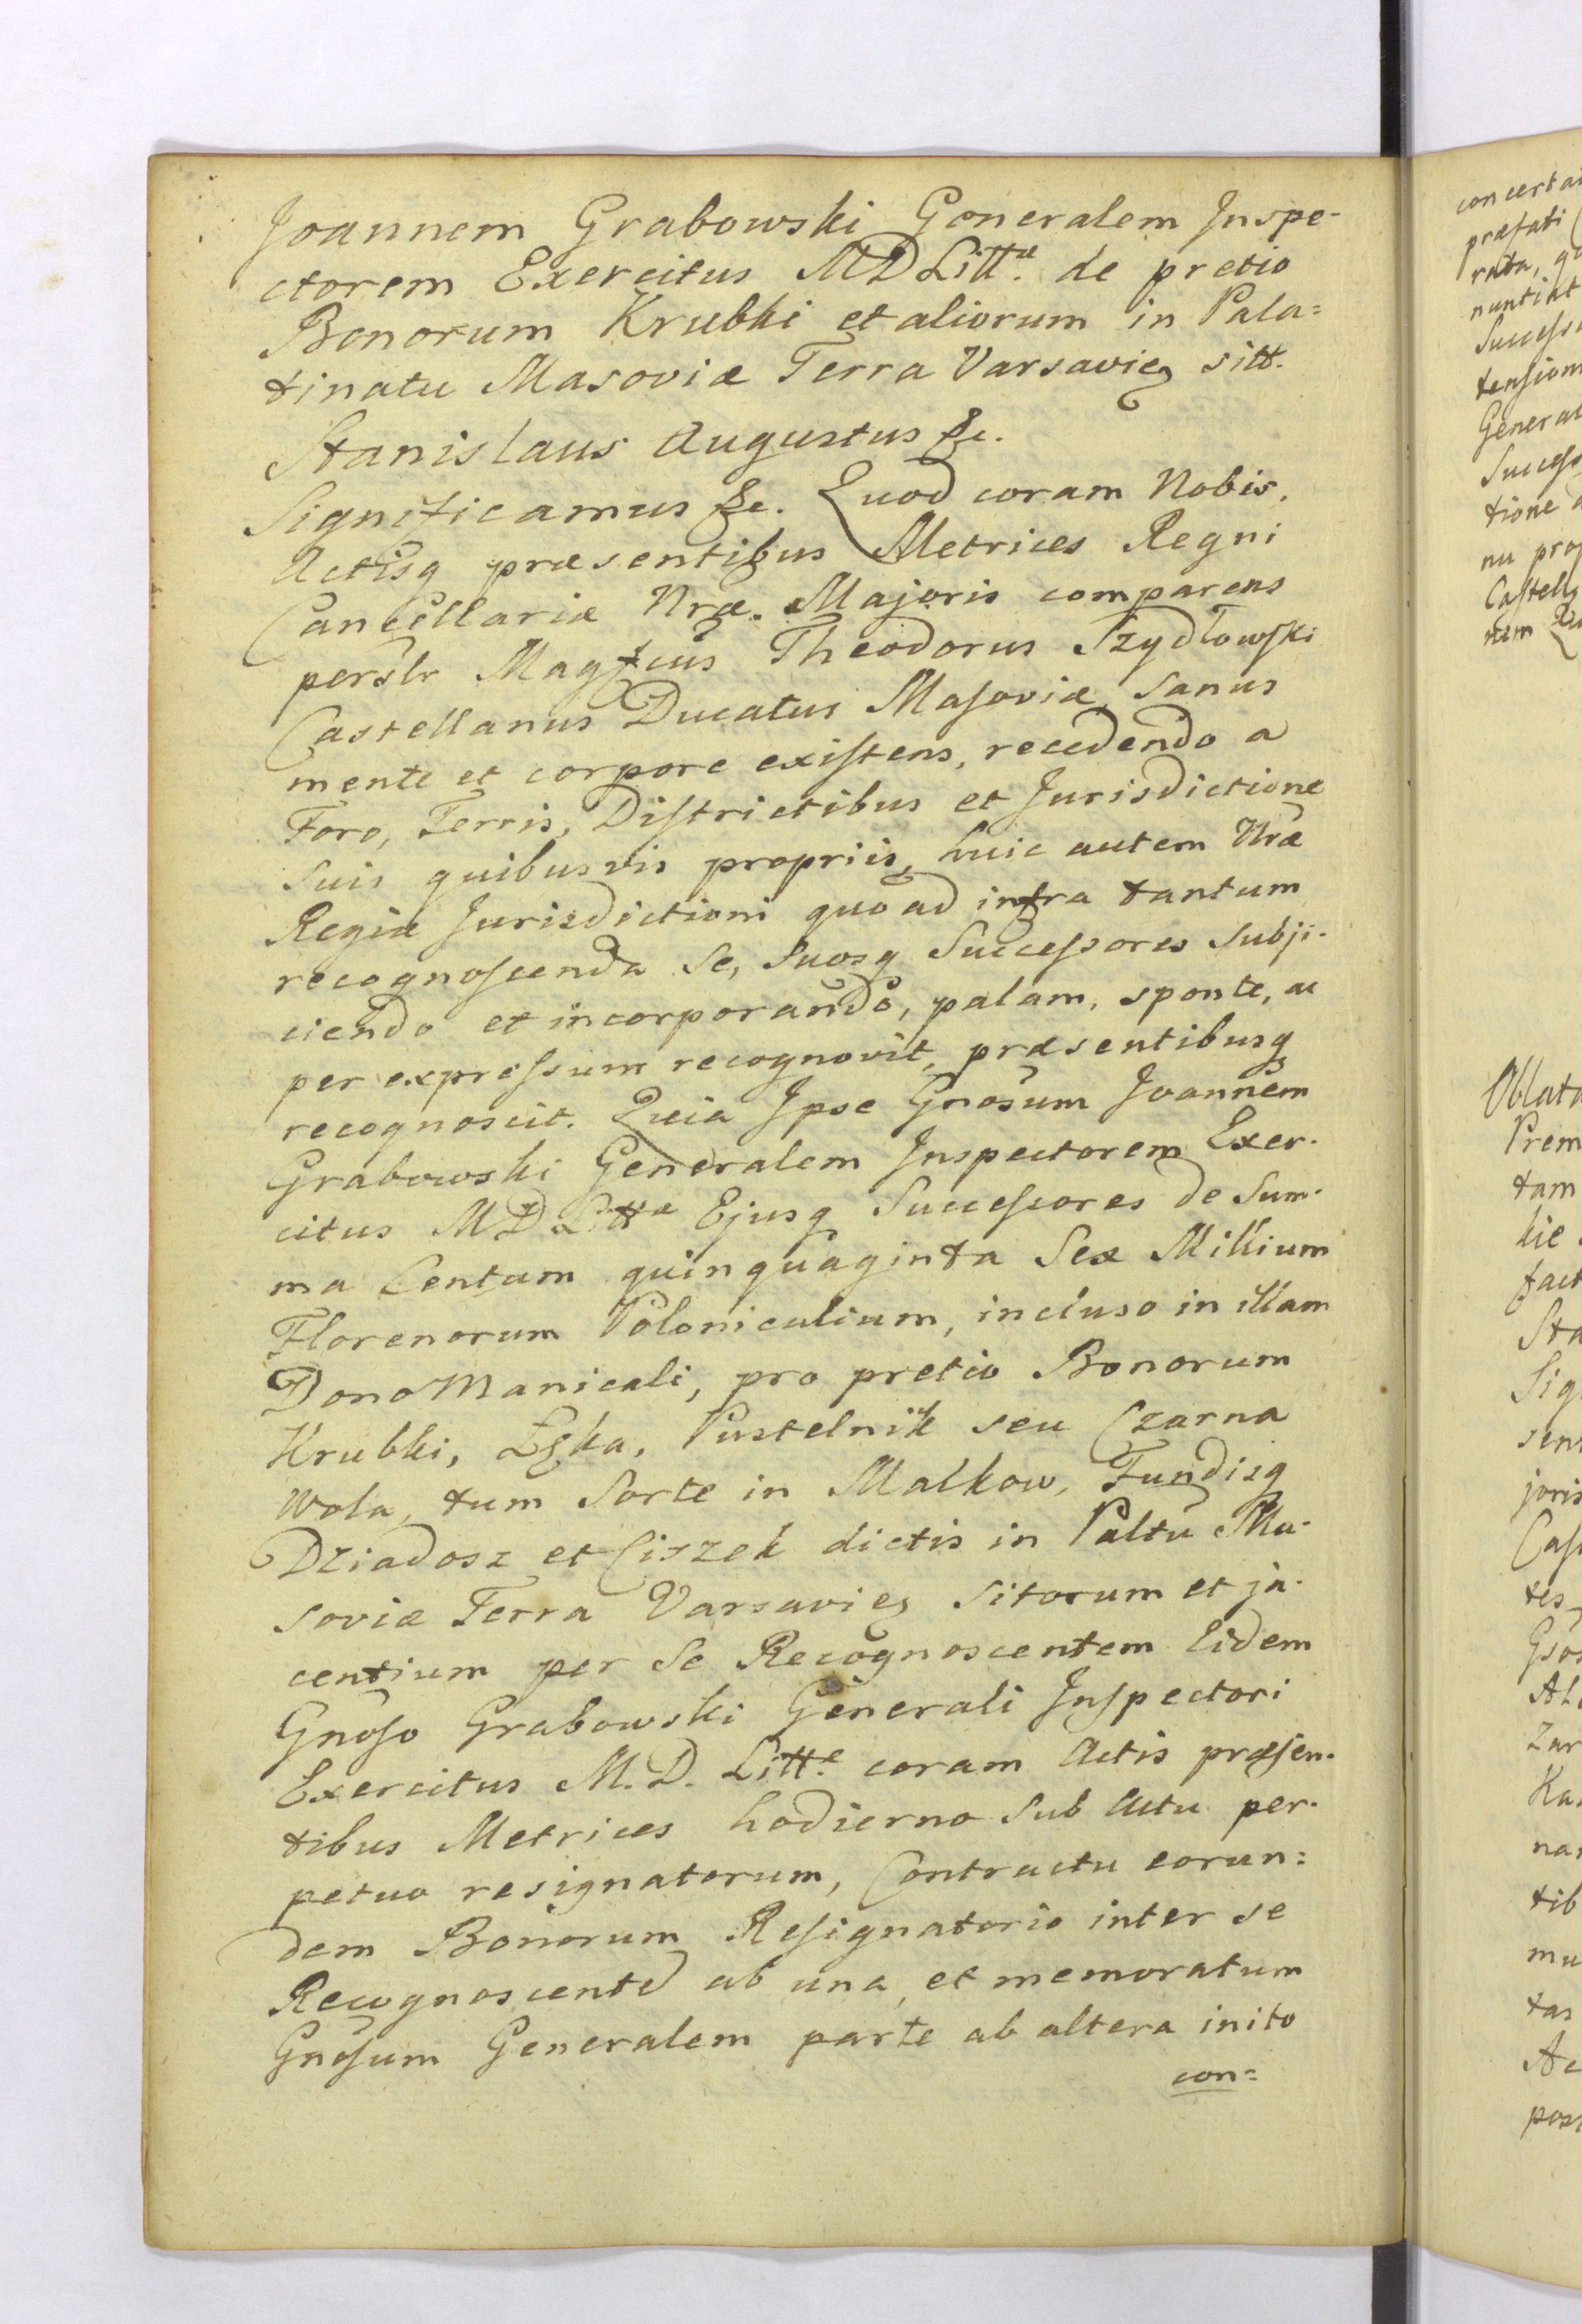 Joannem Grabowski Generalem Inspe-
ctorem Exercitus MD Littæ. de pretio
Bonorum Krubki et aliorum in Pala=
tinatu Masoviæ Terra Varsavieꝫ sitt.
Stanislaus Augustus &c.
Significamus &c. Quod coram Nobis,
Actisq præsentibus Metrices Regni
Cancellariæ Nræ. Majoris comparens
perslr Magfcus Theodorus Szydłowſki
Castellanus Ducatus Maſoviæ, sanus
mente et corpore exiſtens, recedendo a
Foro, Terris, Diſtrictibus et Jurisdictione
suis quibusvis propriis, huic autem Nræ
Regiæ Jurisdictioni quoad infra tantum
recognoſcenda Se, Suosq Succeſsores Subji-
ciendo et incorporando, palam, sponte, ac
per expreſsum recognovit, præsentibusq
recognoscit. Quia Ipse Gnosum Joannem
Grabowski Generalem Inspectorem Exer-
citus MD Littæ Ejusq Succeſsores de Sum-
ma Centum quinquaginta Sex Millium
Florenorum Polonicalium, incluso in illam
Dono Manicali, pro pretio Bonorum
Krubki, Łęka, Pustelnik seu Czarna
Wola, tum Sorte in Malkow, Fundisq
Dziadosz et Ciszek dictis in Paltu Ma-
soviæ Terra Varsavieꝫ Sitorum et ja-
centium per Se Recognoscentem Eidem
Gnoſo Grabowski Generali Inſpectori
Exercitus M. D. Litt.æ coram Actis præſen-
tibus Metrices hodierno Sub Actu per-
petuo resignatorum, Contractu eorun=
dem Bonorum Reſignatorio inter se
Recognoscente ab una, et memoratum
Gnoſum Generalem parte ab altera inito
con=
concerta
præfati
rata,
nuntiat
Succeſs
tenſion
General
Succeſs
tione
nu prop
Caſtell
nem
Oblata
Prem
tam
hic
fact
Sta
Sig
sen
joris
Caſ
tes
Gſo
Al
Zar
Ka
na
tib
mu
tas
Ac
pos